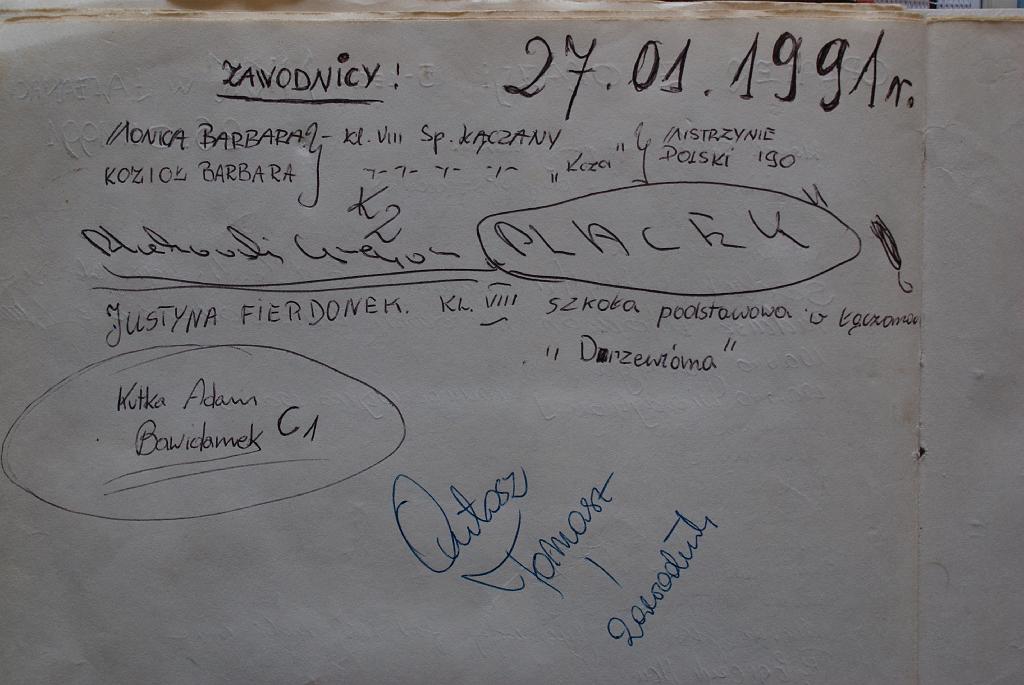 ZAWODNICY! 27.01.1991r.
MONICA BARBARA - kl. VIII Sp. ŁĄCZANY MISTRZYNIE
KOZIOŁ BARBARA -"- -"- -"- -"- „Koza" POLSKI '90
K2
„PLACEK"
JUSTYNA FIERDONEK. KL. VIII SZKOŁA podstawowa w Łączanach
"Drzewióma"
Kutka Adam
Bawidamek C1
Tomasz
zawodnik